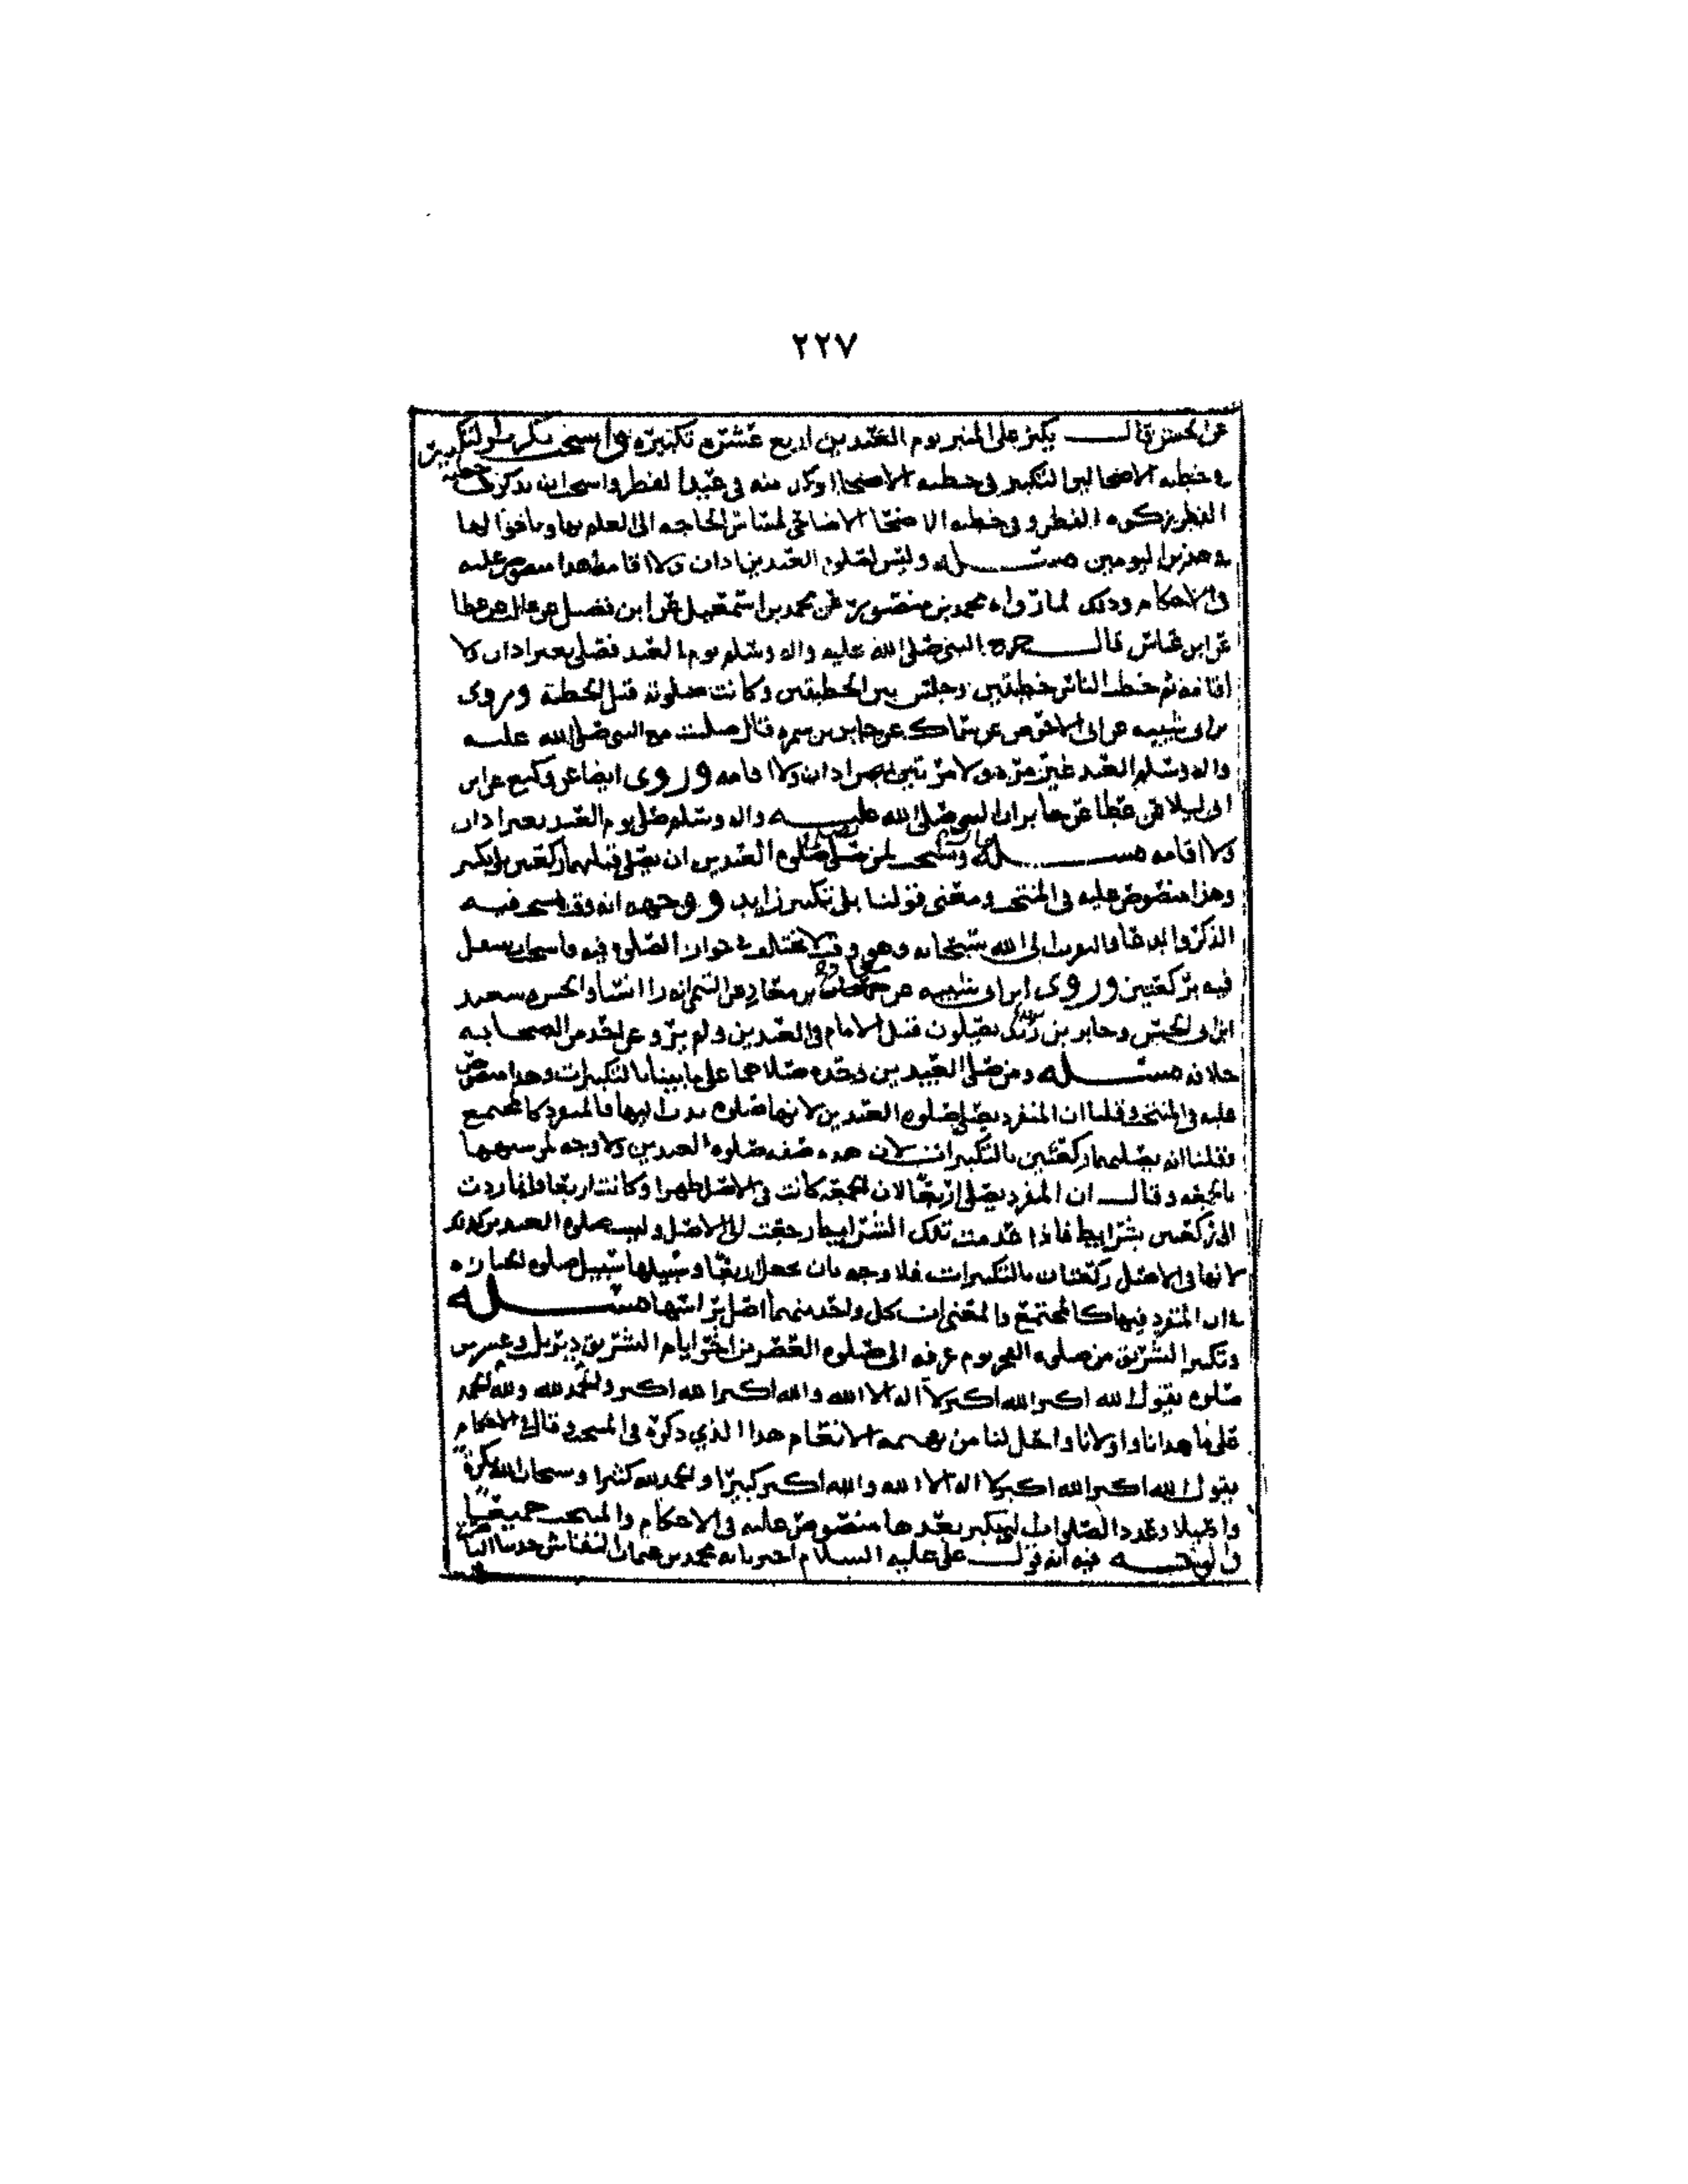 ٢٢٧
عن الحسن قال يكبر على المنبر يوم العيدين اربع عشرة تكبيرة وا
في خطبه الاضحا التكبير في خطبه الاضحا وكل منه في عيد الفطر واستحب ان يذكر في خطبه
الفطر زكوه الفطر وفي خطبه الاضحا الاضاحي لمساس الحاجه الى العلم بها
هذين اليومين مسئله وليس لصلوه العيدين اذان ولا اقامه هذا منصوص عليه
في الاحكام وذلك لما رواه محمد بن منصور عن محمد بن اسمعيل عن ابن فضيل عن عطا
عن ابن عباس قال خرج النبي صلى الله عليه واله وسلم يوم العيد فصلى بغير اذان ولا
اقامه ثم خطب الناس خطبتين وجلس بين الخطبتين وكانت صلوته قبل الخطبة وروى
بن ابي شيبه عن ابي الاحوص عن سماك عن جابر بن سمره قال صليت مع النبي صلى الله عليه
واله وسلم العيد غير مره ولا مرتين بغير اذان ولا اقامه وروى ايضا عن وكيع عن ابن
ابي ليلا عن عطا عن جابر ان النبي صلى الله عليه واله وسلم صلى يوم العيد بغير اذان
ولا اقامه مسئله ويستحب لمن صلوه العيدين ان يصلي قبلهما ركعتين بلا تكبير
وهذا منصوص عليه في المنتخب ومعنى قولنا بلا تكبير زايد ووجهه انه وقت يستحب فيه
الذكر والدعا والتقرب الى الله سبحانه وهو وقت لا يختلف في جواز الصلوه فيه فاستحب
فيه بركعتين وروى ابن ابي شيبه عن معاذ بن معاذ عن التيمي انه راا انسا والحسن وسعيد
ابن ابي الحسن وجابر بن زيد يصلون قبل الامام في العيدين ولم يرو عن احد من الصحابه
خلافه مسئله ومن صلى العيدين وحده صلاهما على ما بينا بالتكبيرات وهذا منصوص
عليه في المنتخب وقلنا ان المنفرد يصلي صلوه العيدين لانها صلوه ندب اليها فالمنفرد كالمجتمع
وقلنا انه يصليهما ركعتين بالتكبيرات لان هذه صفه صلوه العيدين ولا وجه لمن
بالجمعه وقال ان المنفرد يصلي اربعا لان الجمعه كانت في الاصل ظهرا وكانت اربعا وانما ردت
الى ركعتين بشرايط فاذا عدمت تلك الشرايط رجعت الى الاصل وليست صلوه العيدين كذلك
لانها في الاصل ركعتان بالتكبيرات فلا وجه بان يجعل اربعا وسبيلها سبيل صلوه الجنازه
في ان المنفرد فيها كالمجتمع والمعنى ان كل واحد منهما اصل براسها مسئله
وتكبير التشريق من صلوه الفجر يوم عرفه الى صلوه العصر من اخر ايام التشريق دبر كل وعشرين
صلوه يقول الله اكبر الله اكبر لا اله الا الله والله اكبر الله اكبر ولله الحمد والحمد لله
على ما هدانا واولانا واحل لنا من بهيمه الانعام هذا الذي ذكره في المنتخب وقال في الاحكام
يقول الله اكبر الله اكبر لا اله الا الله والله اكبر كبيرا والحمد لله كثيرا وسبحان الله بكرة
واصيلا وعدد الصلوات التي يكبر بعدها منصوص عليه في الاحكام والمنتخب جميعا
والوجه فيه انه قول علي عليه السلام اخبرنا به محمد بن عثمان النقاش حدثنا الناصر